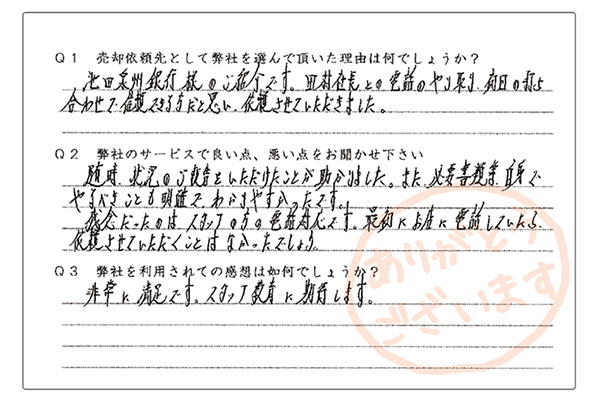 Q1 売却依頼先として弊社を選んで頂いた理由は何でしょうか?
池田泉州銀行様のご紹介です。田村社長との電話のやり取り、初日の打ち
合わせで信頼できる方だと思い、依頼させていただきました。
Q2 弊社のサービスで良い点、悪い点をお聞かせ下さい
随時、状況のご報告をいただけたことが助かりました。また、必要書類等、自身で
やるべきことも明確でわかりやすかったです。
残念だったのはスタッフの方の電話対応です。最初にお店に電話していたら、
依頼させていただくことはなかったでしょう。
Q3 弊社を利用されての感想は如何でしょうか?
非常に満足です。スタッフ教育に期待します。
ありがとう
ございます